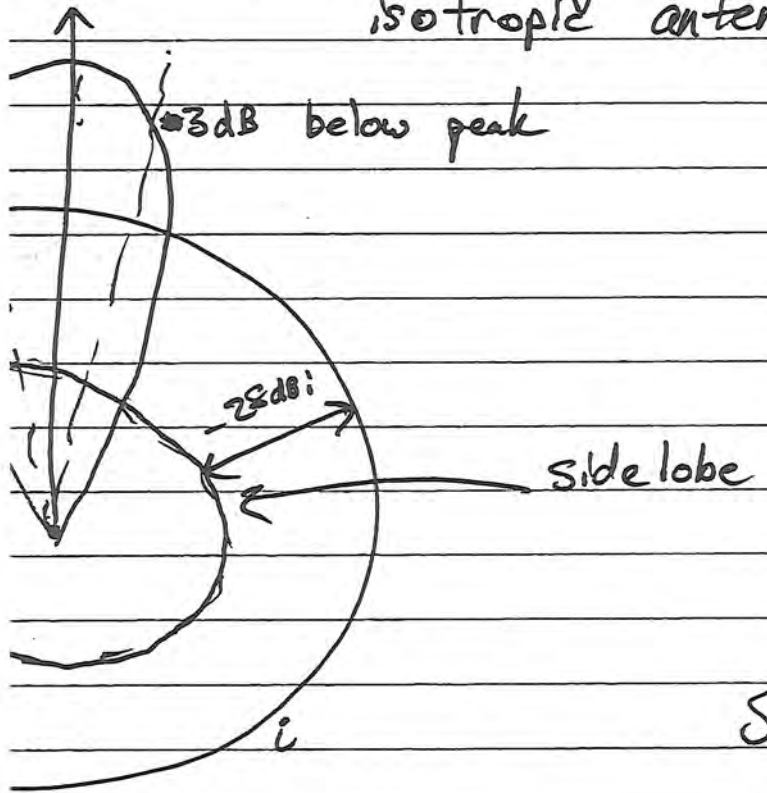 isotropic anten
3dB below peak
dBi
side lobe
i
S